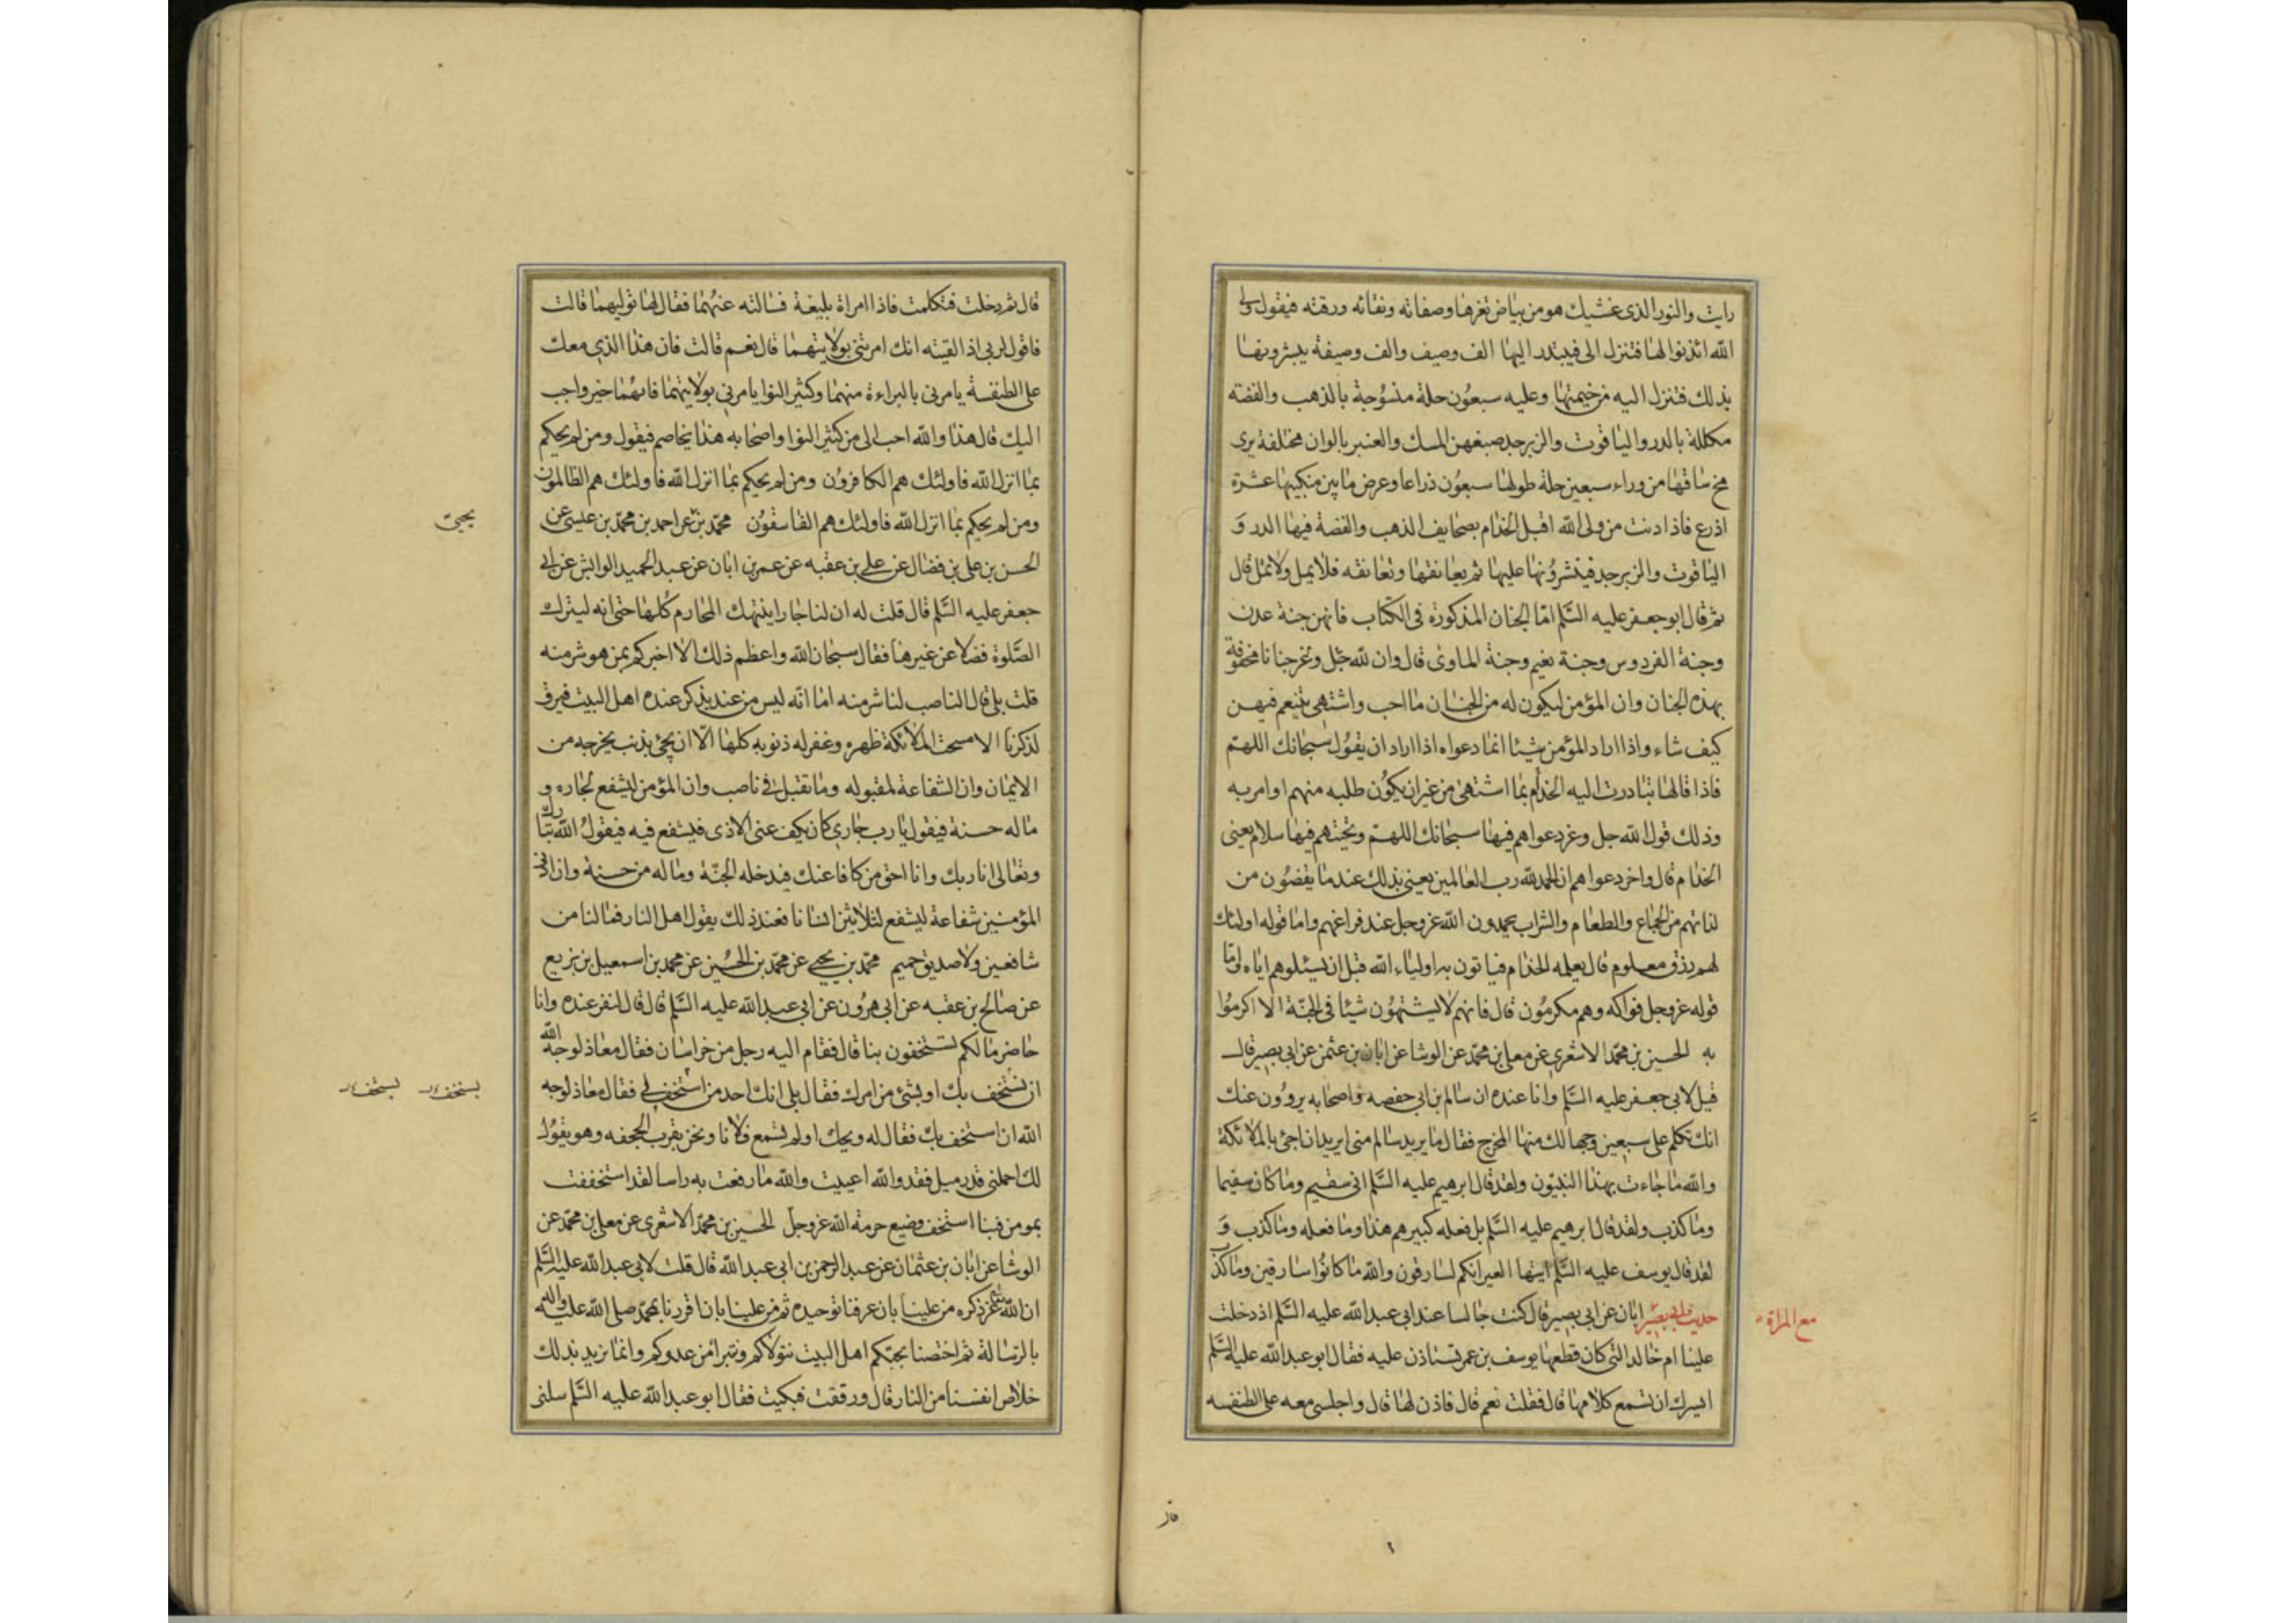 رايت والنور الذى غشيك هو من بياض ثغرها وصفائه ونقائه ورقته فيقول ولى
الله ائذنوا لها فتنزل الى فيبتدر اليها الف وصيف والف وصيفة يبشرونها
بذلك فتنزل اليه من خيمتها وعليه سبعون حلة منسوجة بالذهب والفضه
مكللة بالدر والياقوت والزبرجد صبغهن المسك والعنبر بالوان مختلفة يرى
مخ ساقها من وراء سبعين حلة طولها سبعون ذراعا وعرض ما بين منكبيها عشرة
اذرع فاذا دنت من ولى الله اقبل الخدام بصحايف الذهب والفضة فيها الدر و
الياقوت والزبرجد فينثرونها عليها ثم يعانقها وتعانقه فلا يمل ولا تمل قال
ثم قال ابو جعفر عليه السلم اما الجنان المذكورة فى الكتاب فانهن جنة عدن
وجنة الفردوس وجنة نعيم وجنة الماوى قال وان لله جل وعز جنانا محفوفة
بهذه الجنان وان المؤمن ليكون له من الجنان ما احب واشتهى يتنعم فيهن
كيف شاء واذا اراد المؤمن شيئا انما دعواه اذا اراد ان يقول سبحانك اللهم
فاذا قالها تبادرت اليه الخدام بما اشتهى من غير ان يكون طلبه منهم او امر به
وذلك قول الله جل وعز دعواهم فيها سبحانك اللهم وتحيتهم فيها سلام يعنى
الخدام قال واخر دعواهم ان الحمد لله رب العالمين يعنى بذلك عند ما يقضون من
لذاتهم من الجماع والطعام والشراب يحمدون الله عز وجل عند فراغهم واما قوله اولئك
لهم رزق معلوم قال يعلمه الخدام فياتون به اولياء الله قبل ان يسئلوهم اياه واما
قوله عز وجل فواكه وهم مكرمون قال فانهم لا يشتهون شيئا فى الجنة الا اكرموا
به الحسين بن محمد الاشعرى عن معلى بن محمد عن الوشا عن ابان بن عثمن عن ابى بصير قال
قيل لابى جعفر عليه السلم وانا عنده ان سالم بن ابى حفصه واصحابه يروون عنك
انك تكلم على سبعين وجها لك منها المخرج فقال ما يريد سالم منى ايريد ان اجئ بالملائكة
والله ما جاءت بهذا النبيون ولقد قال ابرهيم عليه السلم انى سقيم وما كان سقيما
وما كذب ولقد قال ابرهيم عليه السلم بل فعله كبيرهم هذا وما فعله وما كذب و
لقد قال يوسف عليه السلم ايتها العير انكم لسارقون والله ما كانوا سارقين وما كذب
حديث ابى بصير ابان عن ابى بصير قال كنت جالسا عند ابى عبد الله عليه السلم اذ دخلت
مع المراة
علينا ام خالد التى كان قطعها يوسف بن عمر تستاذن عليه فقال ابو عبد الله عليه السلم
ايسرك ان تسمع كلامها قال فقلت نعم قال فاذن لها قال واجلسنى معه على الطنفسه
قال ثم دخلت فتكلمت فاذا امراة بليغة فسالته عنهما فقال لها توليهما قالت
فاقول لربى اذا لقيته انك امرتنى بولايتهما قال نعم قالت فان هذا الذى معك
على الطنفسة يامرنى بالبراءة منهما وكثير النوا يامرنى بولايتهما فايهما خير واحب
اليك قال هذا والله احب الى من كثير النوا واصحابه هذا يخاصم فيقول ومن لم يحكم
بما انزل الله فاولئك هم الكافرون ومن لم يحكم بما انزل الله فاولئك هم الظالمون
ومن لم يحكم بما انزل الله فاولئك هم الفاسقون محمد بن عن احمد بن محمد بن عيسى عن
يحيى
الحسن بن على بن فضال عن على بن عقبه عن عمر بن ابان عن عبد الحميد الوابشى عن ابى
جعفر عليه السلم قال قلت له ان لنا جارا ينتهك المحارم كلها حتى انه ليترك
الصلوة فضلا عن غيرها فقال سبحان الله واعظم ذلك الا اخبركم بمن هو شر منه
قلت بلى قال الناصب لنا شر منه اما انه ليس من عبد يذكر عنده اهل البيت فيرق
لذكرنا الا مسحت الملائكة ظهره وغفر له ذنوبه كلها الا ان يجئ بذنب يخرجه من
الايمان وان الشفاعة لمقبوله وما تقبل فى ناصب وان المؤمن ليشفع لجاره و
ما له حسنة فيقول يا رب جارى كان يكف عنى الاذى فيشفع فيه فيقول الله تبارك
وتعالى انا ربك وانا احق من كافا عنك فيدخله الجنة وما له من حسنة وان ادنى
المؤمنين شفاعة ليشفع لثلاثين انسانا فعند ذلك يقول اهل النار فما لنا من
شافعين ولا صديق حميم محمد بن يحيى عن محمد بن الحسين عن محمد بن اسمعيل بن بزيع
عن صالح بن عقبه عن ابى هرون عن ابى عبد الله عليه السلم قال قال لنفر عنده وانا
حاضر ما لكم تستخفون بنا قال فقام اليه رجل من خراسان فقال معاذ لوجه الله
ان نستخف بك او بشئ من امرك فقال بلى انك احد من استخف بى فقال معاذ لوجه
يستخف يستخف
الله ان استخف بك فقال له ويحك اولم تسمع فلانا ونحن بقرب الجحفه وهو يقول
لك احملنى قدر ميل فقد والله اعييت والله ما رفعت به راسا لقد استخففت
بمومن فبنا استخف وضيع حرمة الله عز وجل الحسين بن محمد الاشعرى عن معلى بن محمد عن
الوشا عن ابان بن عثمان عن عبد الرحمن بن ابى عبد الله قال قلت لابى عبد الله عليه السلم
ان الله عز ذكره من علينا بان عرفنا توحيده ثم من علينا بان اقررنا بمحمد صلى الله عليه واله
بالرسالة ثم اختصنا بحبكم اهل البيت نتولاكم ونتبرا من عدوكم وانما نريد بذلك
خلاص انفسنا من النار قال ورققت فبكيت فقال ابو عبد الله عليه السلم سلنى